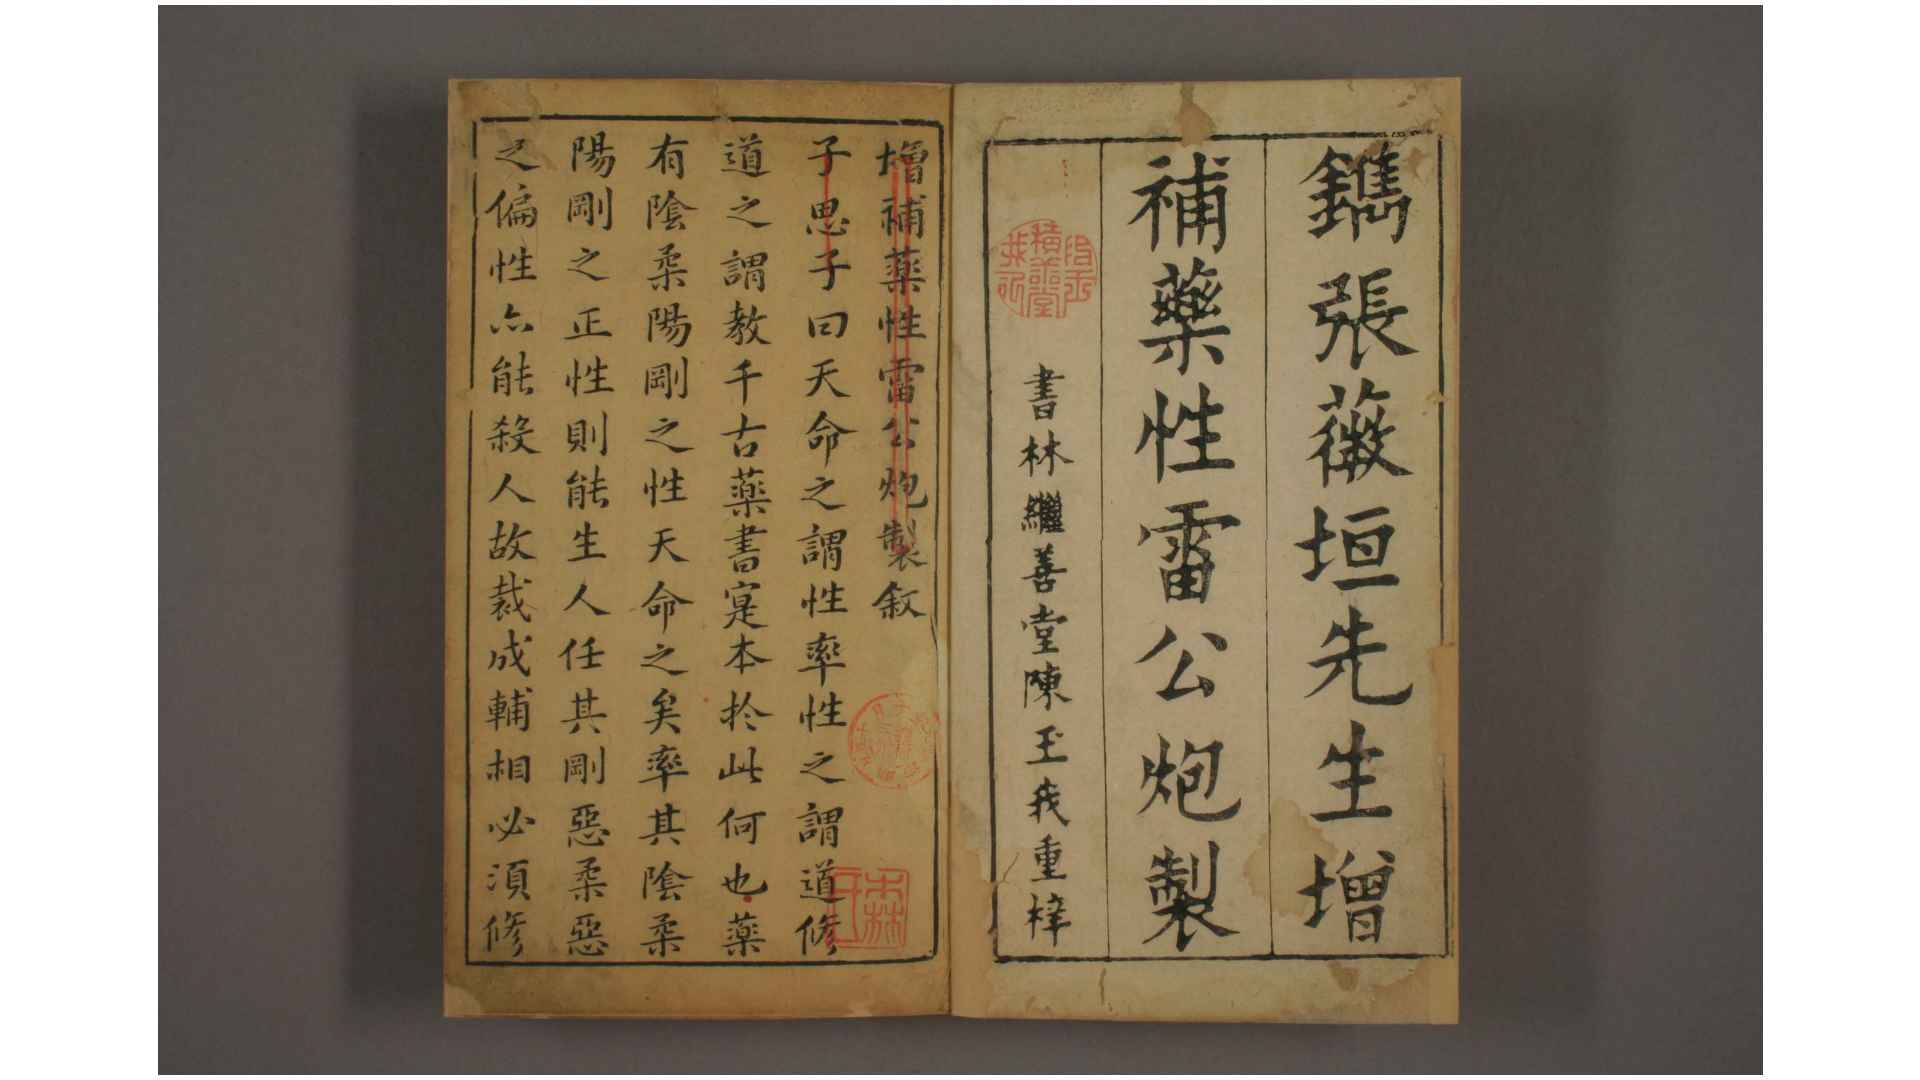 鐫張薇垣先生增
補藥性雷公炮製
書林繼善堂陳玉我重梓
增補藥性雷公炮製敘
子思子曰天命之謂性率性之謂道修
道之謂教千古藥書寔本於此何也藥
有陰柔陽剛之性天命之矣率其陰柔
陽剛之正性則能生人任其剛惡柔惡
之偏性亦能殺人故裁成輔相必須修